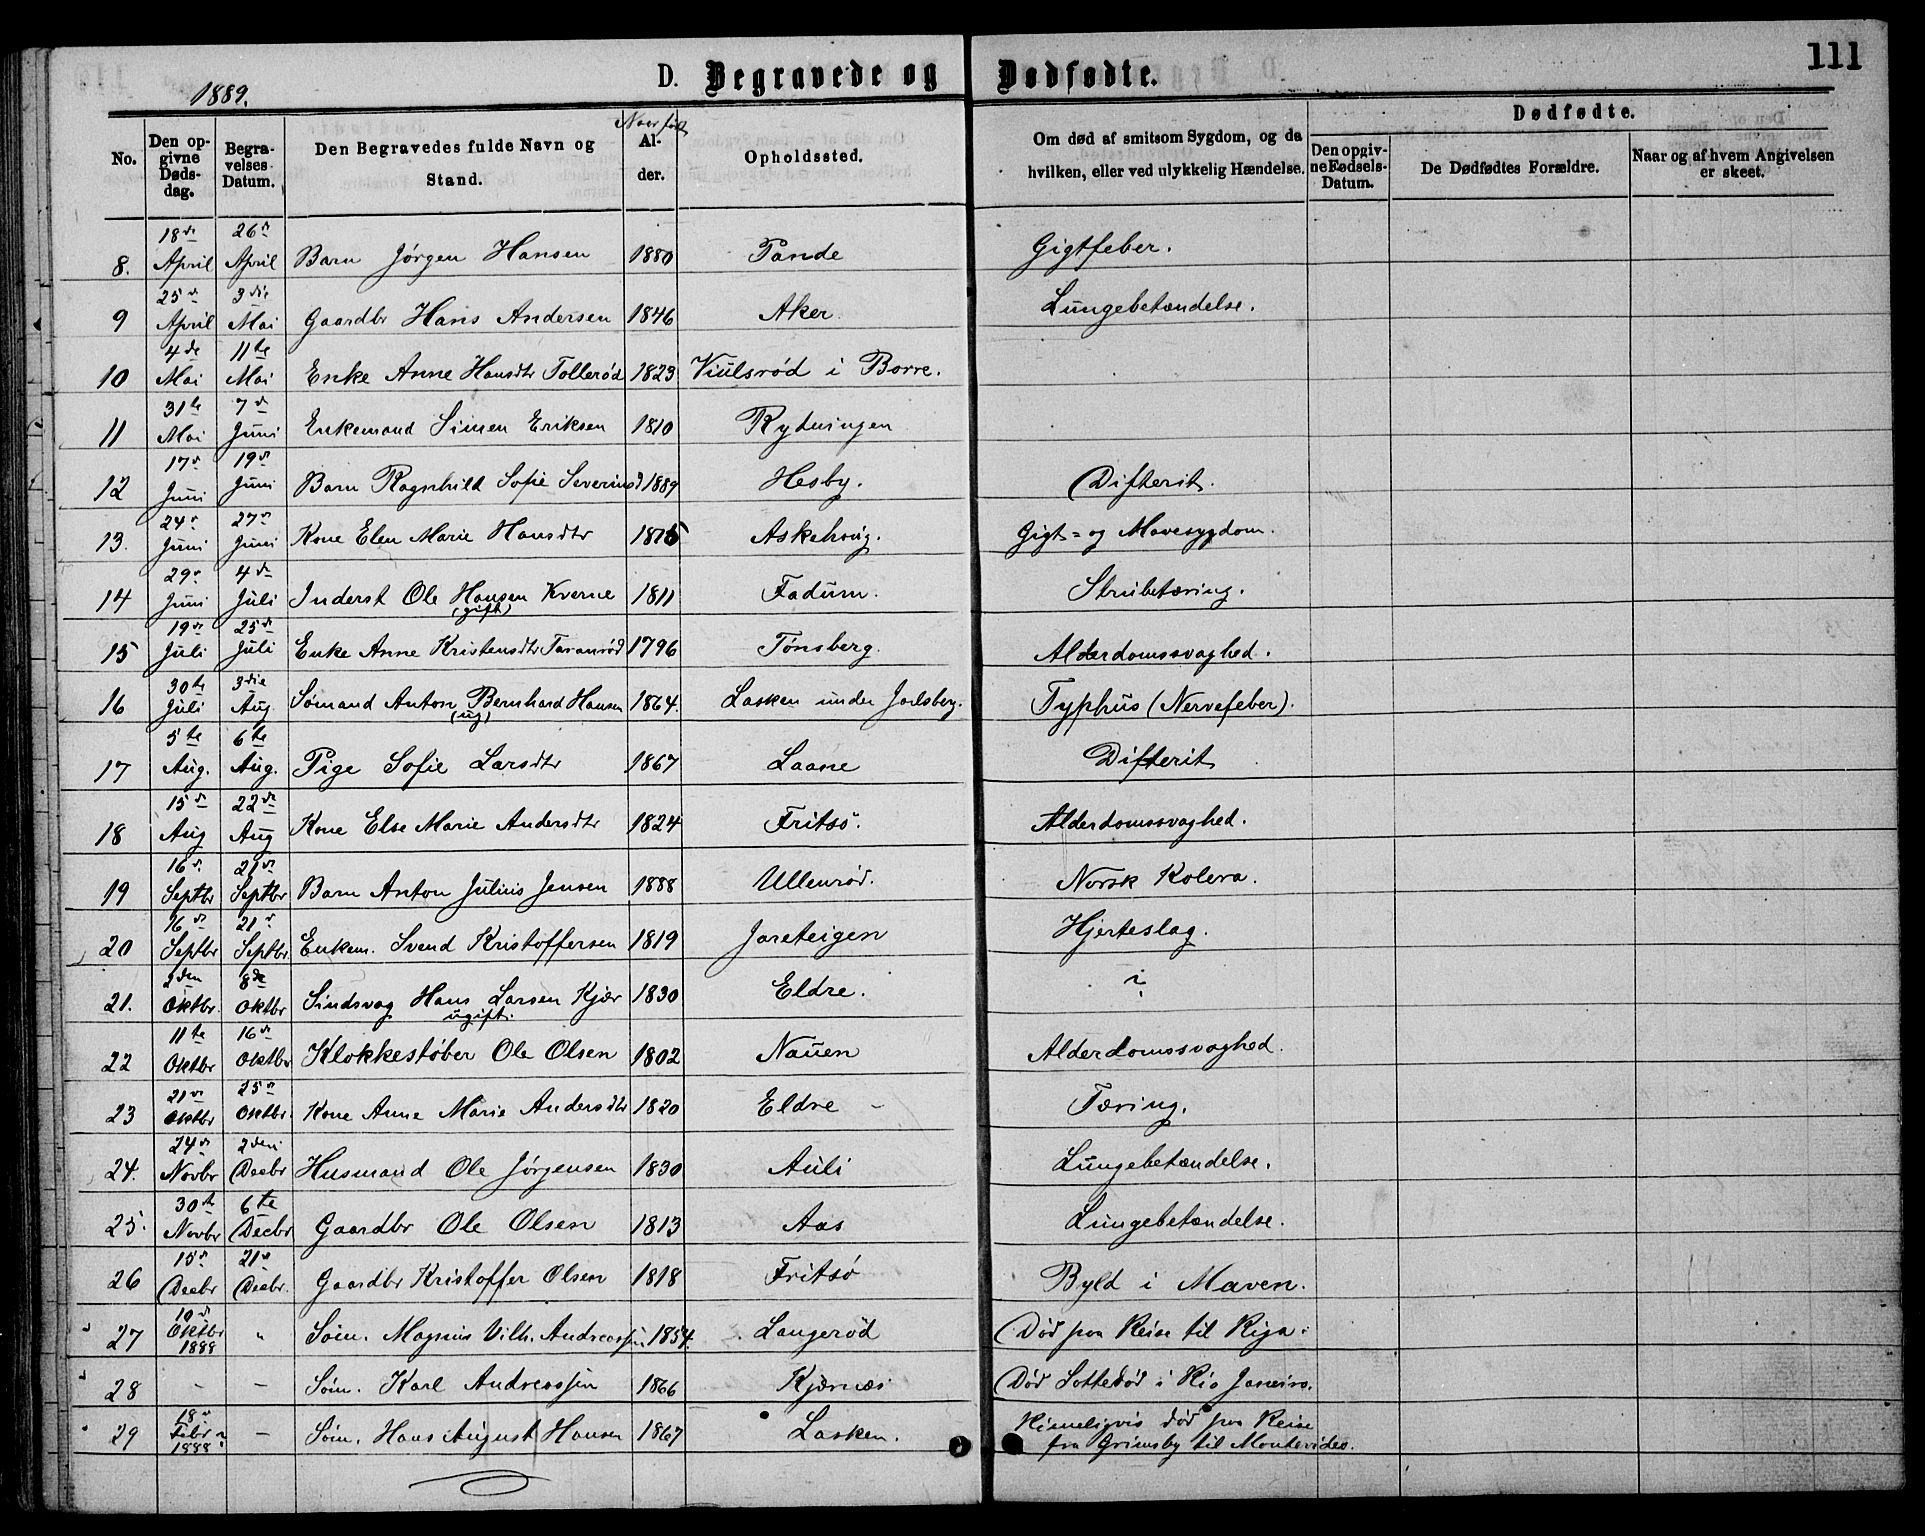 111
D. Begravede og Dødfødte.
1889.
No.
Den opgivne Dødsdag.
Begravelses Datum.
Den Begravedes fulde Navn og Stand.
Naar født
Alder.
Opholdssted.
Om død af smitsom Sygdom, og da hvilken, eller ved ulykkelig Hændelse.
Dødfødte.
Den opgivne Fødsels-Datum.
De Dødfødtes Forældre.
Naar og af hvem Angivelsen er skeet.
8. 18de April 26de April Barn Jørgen Hansen 1880 Pande Gigtfeber.
9 25de April 3die Mai Gaardbr Hans Andersen 1846 Aker. Lungebetændelse.
10 4de Mai 11te Mai Enke Anne Hansdtr Tollerød 1823 Viulsrød i Borre.
11 31te Mai 7de Juni Enkemand Simen Eriksen 1810 Rydningen
12 17de Juni 19de Juni Barn Ragnhild Sofie Severinsd 1889 Hesby. Difterit.
13. 24de Juni 27de Juni Kone Elen Marie Hansdtr Askehoug. Gigt= og Mavesygdom.
14 29de Juni 4de Juli Inderst Ole Hansen Kverne (gift) 1811 Fadum. Strubetæring.
15 19de Juli 25de Juli Enke Anne Kristensdtr Taranrød 1796 Tønsberg. Alderdomssvaghed.
16 30te Juli 3die Aug. Sømand Anton Bernhard Hansen (ug) 1864. Lasken under Jarlsberg. Typhus (Nervefeber).
17 5te Aug. 6te Aug. Pige Sofie Larsdtr 1867 Laane Difterit
18 15de Aug 22de Aug Kone Else Marie Andersdtr 1824 Fritsø. Alderdomssvaghed.
19 16de Septbr 21de Septbr Barn Anton Julius Jensen 1888 Ullenrød. Norsk Kolera.
20 16de Septbr 21de Septbr. Enkem. Svend Kristoffersen 1819 Jareteigen Hjerteslag.
21. 2den Oktbr. 8de Oktbr Sindsvag Hans Larsen Kjær ugift. 1830 Eldre. ?
22 11te Oktbr 16de Oktbr Klokkestøber Ole Olsen 1802 Nauen Alderdomssvaghed.
23 21de Oktbr 25de Oktbr. Kone Anne Marie Andersdtr 1820 Eldre - Tæring.
24. 24de Novbr 2den Decbr Husmand Ole Jørgensen 1830 Auli Lungebetændelse.
25. 30te Novbr 6te Decbr Gaardbr Ole Olsen 1813 Aas Lungebetændelse.
26 15de Decbr 21de Decbr. Gaardbr Kristoffer Olsen 1818 Fritsø Byld i Maven.
27 10de Oktbr 1888 " Søm. Magnus Vilh. Andreassen 1854. Langerød Død paa Reise til Riga.
28 - - Søm. Karl Andreassen 1866 Kjærnæs Død i Rio Janeiro.
29 18de Febr 1888 ? - Søm. Hans August Hansen 1867 Lasken. Rimeligvis død paa Reise
fra Grimsby til Montevideo.